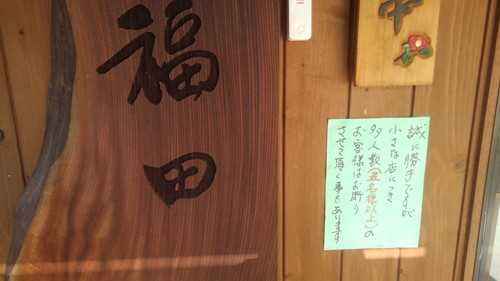 福田
中
誠に勝手ですが
小さな店につき
多人数(五名様以上)の
お客様はお断り
させて頂く事もあります